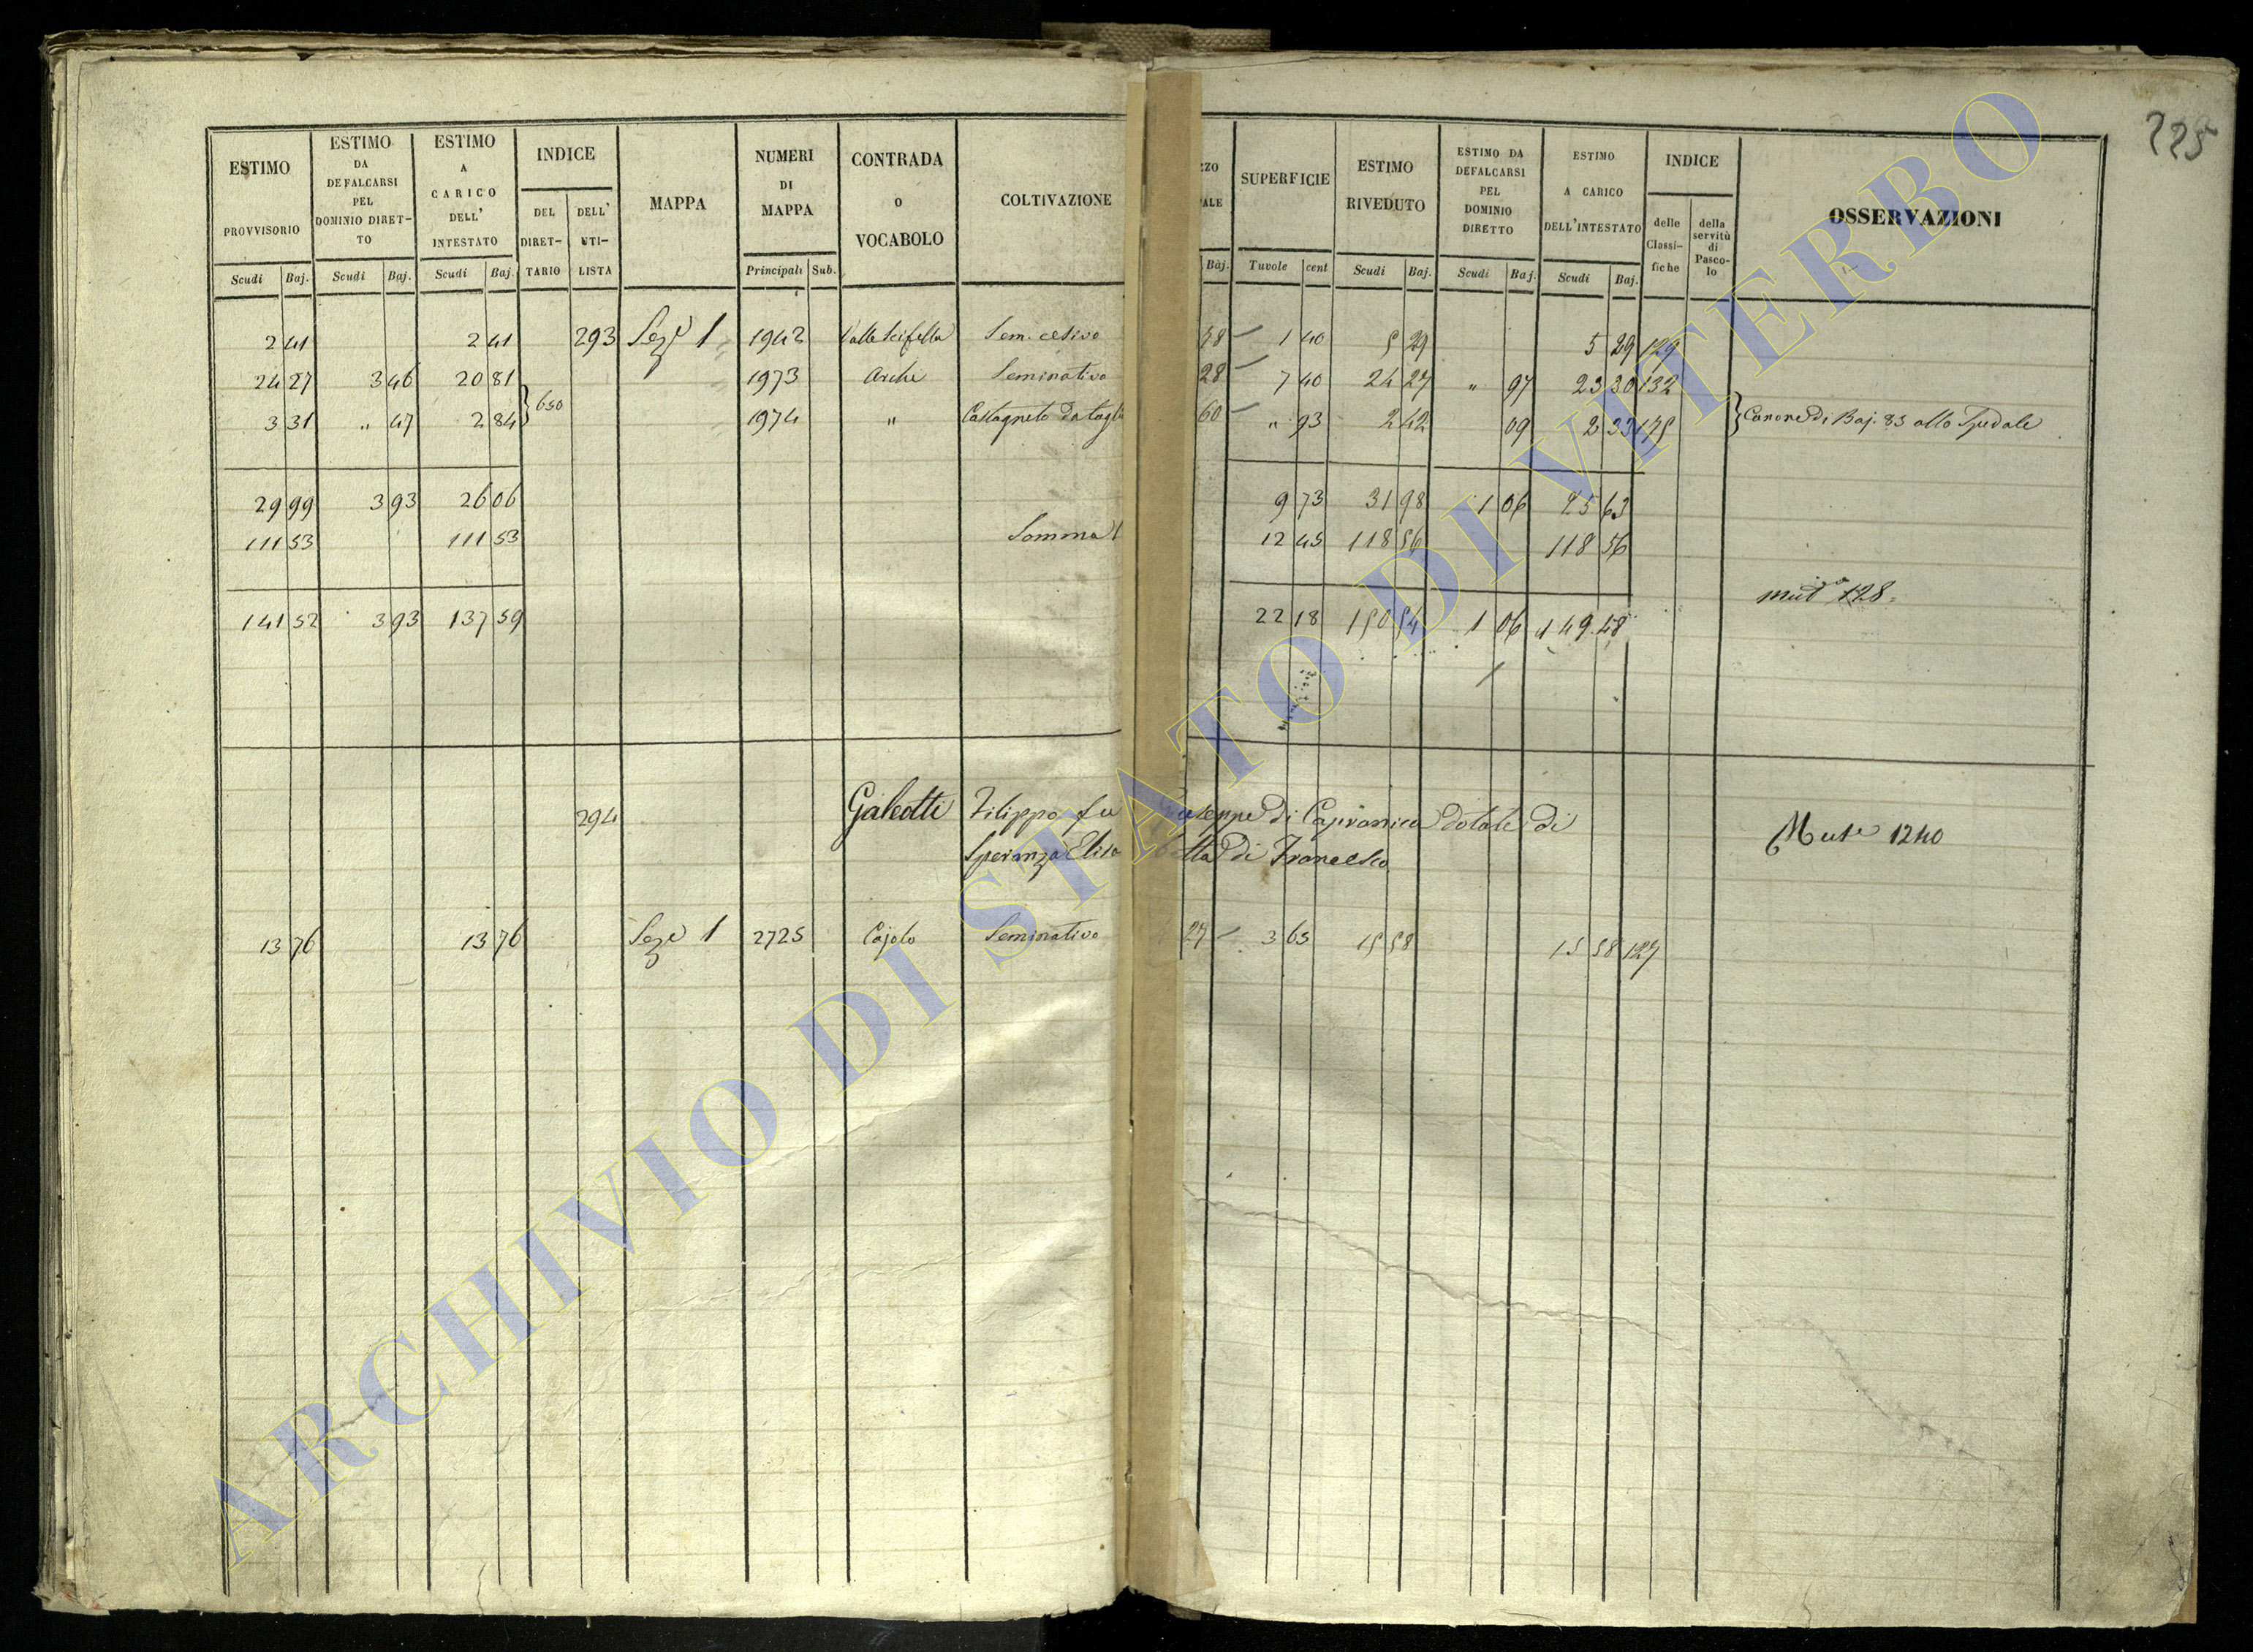 225
ESTIMO PROVVISORIO Scudi Baj.
ESTIMO DA DEFALCARSI PEL DOMINIO DIRETTO Scudi Baj.
ESTIMO A CARICO DELL' INTESTATO Scudi Baj.
INDICE DEL DIRETTARIO DELL' UTILISTA
MAPPA
NUMERI DI MAPPA Principali Sub.
CONTRADA O VOCABOLO
COLTIVAZIONE
ZZO ALE Baj.
SUPERFICIE Tavole cent
ESTIMO RIVEDUTO Scudi Baj.
ESTIMO DA DEFALCARSI PEL DOMINIO DIRETTO Scudi Baj.
ESTIMO A CARICO DELL'INTESTATO Scudi Baj.
INDICE delle Classifiche della servitù di Pascolo
OSSERVAZIONI
2 41 2 41 293 Sez.e 1 1942 Sem. 78 1 40 5 29 5 29 129
24 27 3 46 20 81 1973 Archi Seminativo 28 7 40 24 27 " 97 23 30 132
3 31 " 47 2 84 } 650 1974 " Castagneto da tagli 60 " 93 2 42 09 2 33 175 } Canone di Baj. 83 allo Spedale
29 99 3 93 26 06 9 73 31 98 1 06 25 63
111 53 111 53 Somma 12 45 118 56 118 56
mut 128
141 52 3 93 137 59 22 18 150 54 1 06 149 48
294 Galeotti Filippo fu Giuseppe di Capranica dotale di
Speranza Elisabetta di Francesco
Mut.e 1240
13 76 13 76 Sez.e 1 2725 Cajolo Seminativo 27 3 65 15 58 15 58 127
ARCHIVIO DI STATO DI VITERBO